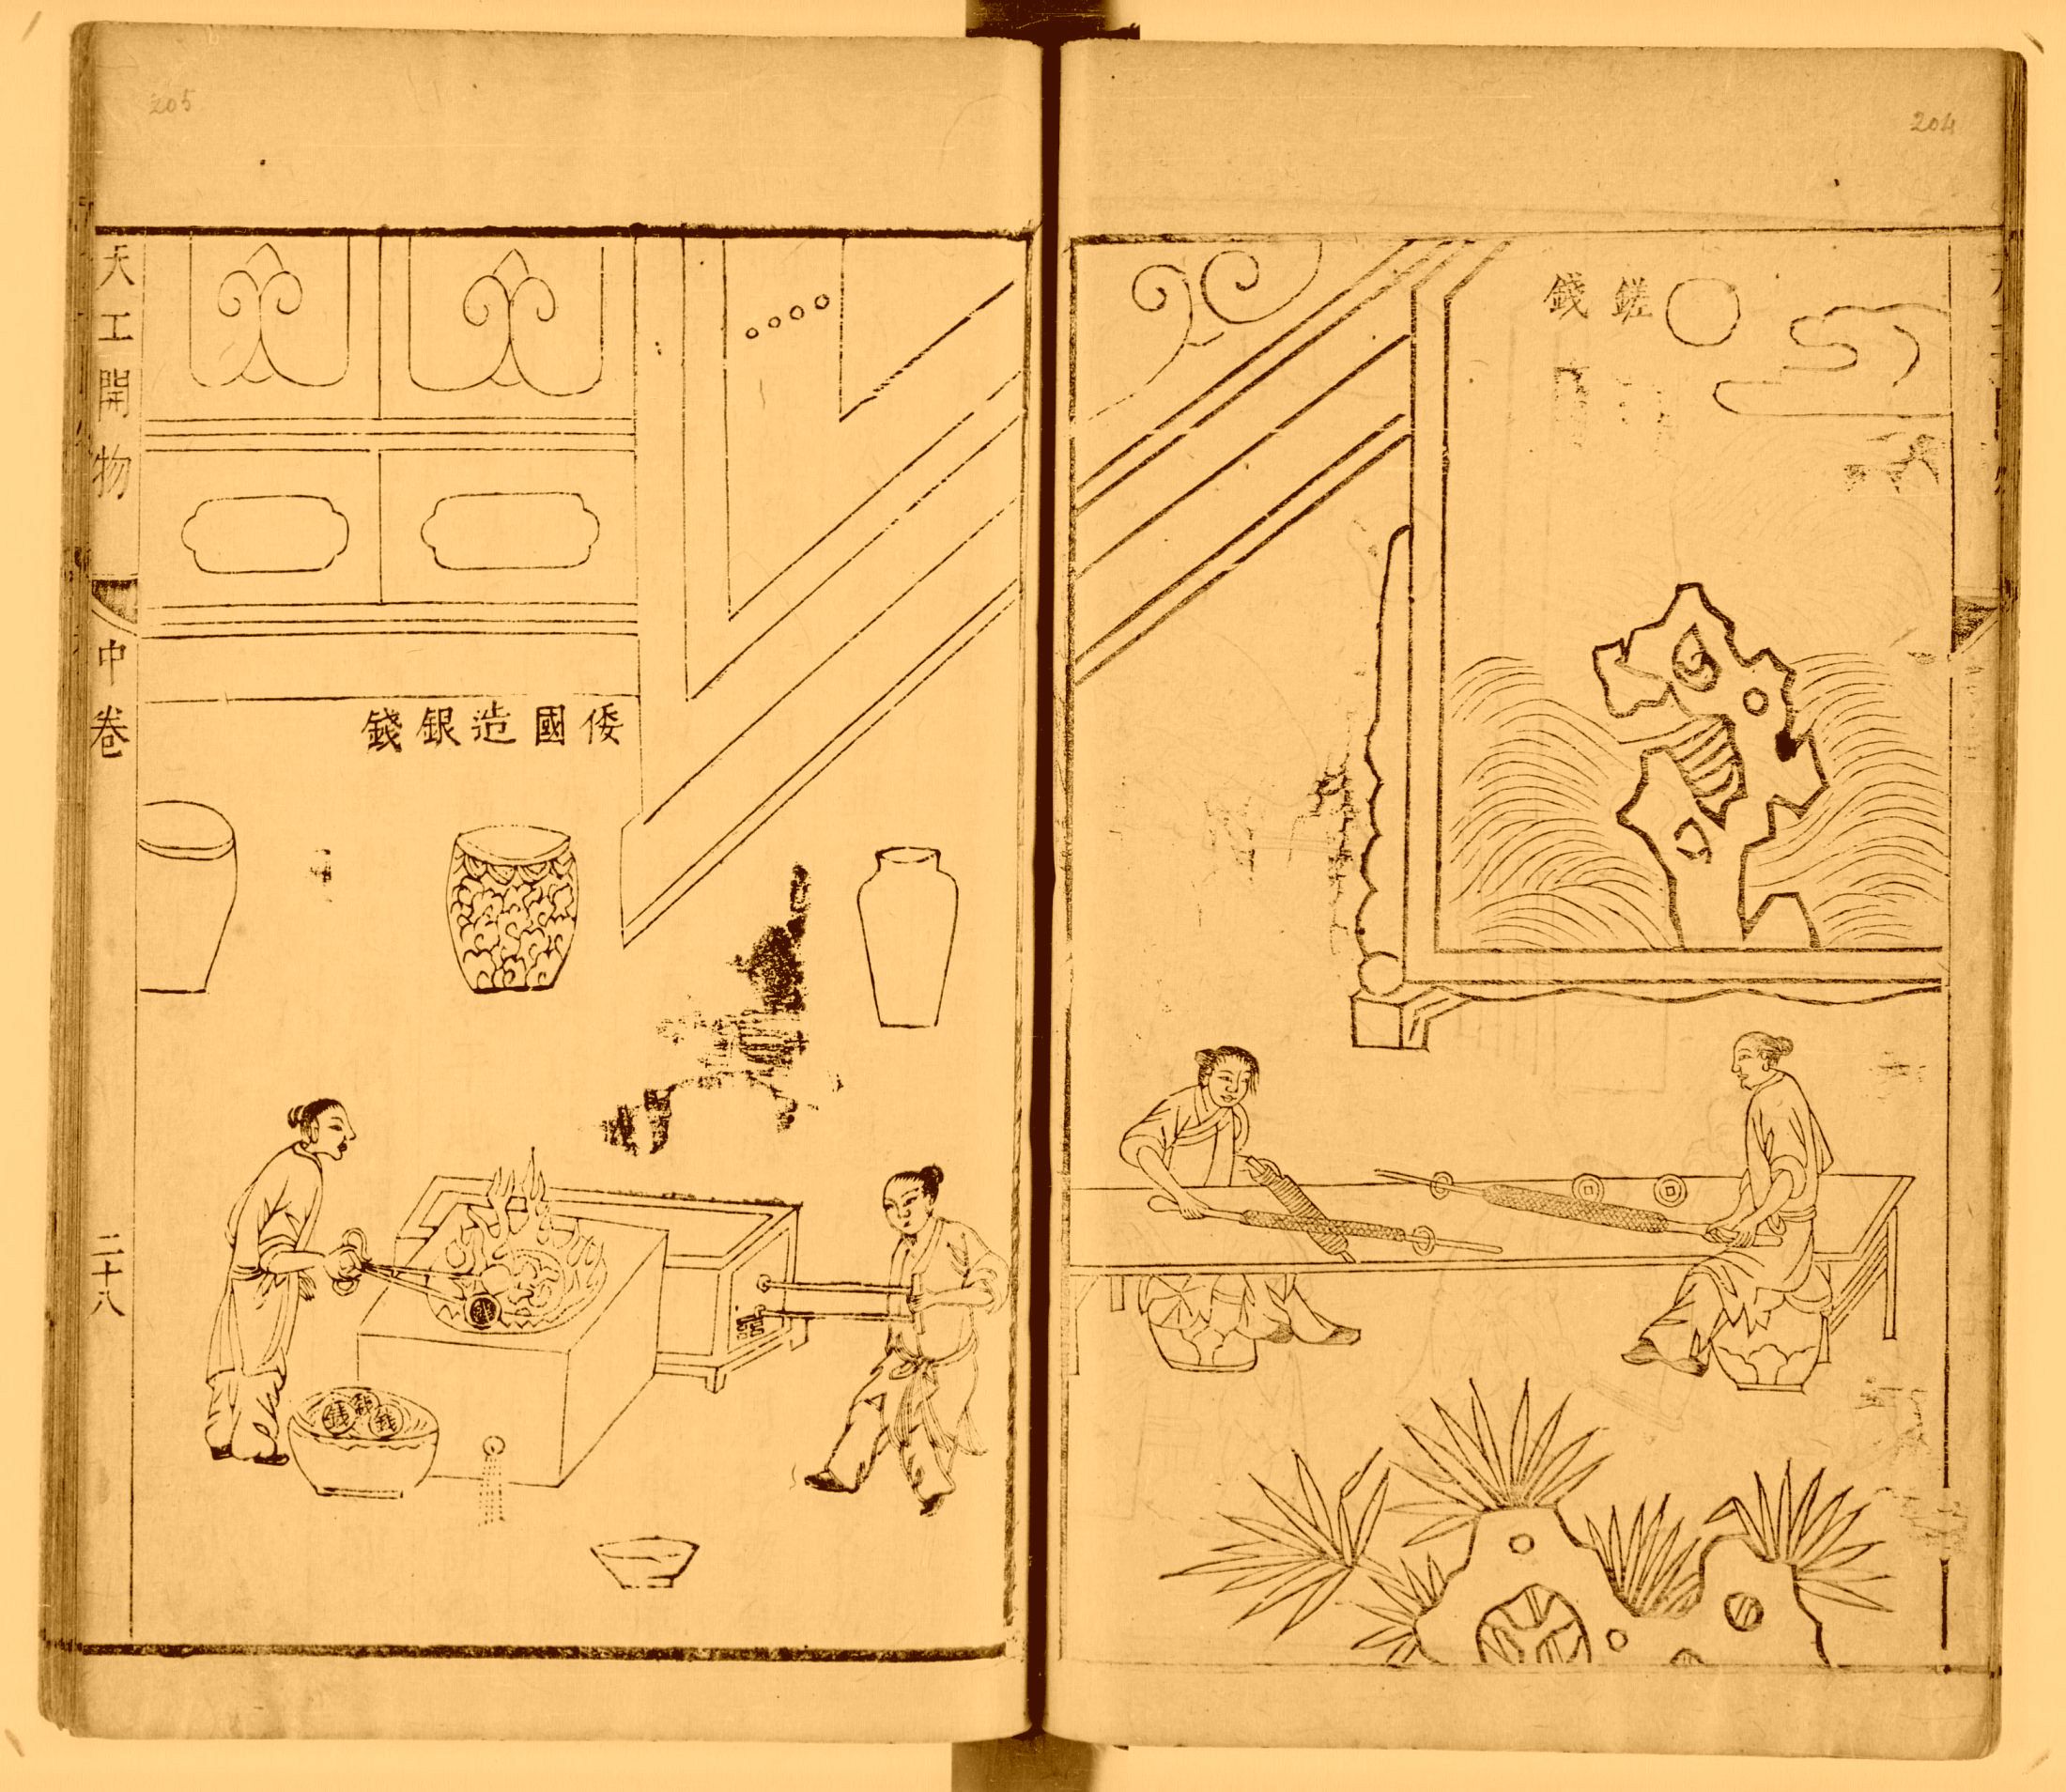 204
鎈錢
205
倭國造銀錢
天工開物
中卷
二十八
錢
錢
錢